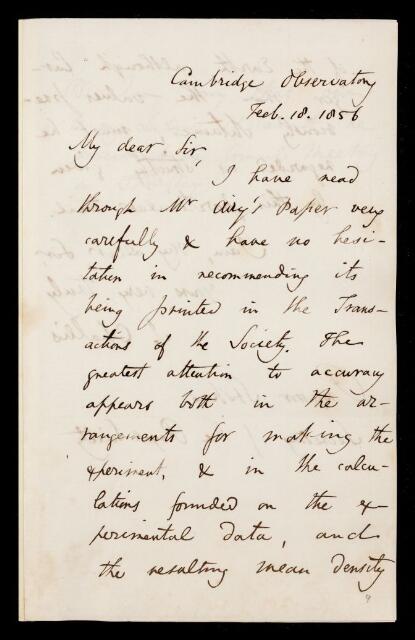 Cambridge Observatory
Feb. 18. 1856
My dear Sir,
I have read
through Mr Airy's Paper very
carefully & have no hesi-
tation in recommending its
being printed in the Trans-
actions of the Society. The
greatest attention to accuracy
appears both in the ar-
rangements for making the
experiment, & in the calcu-
lations founded on the ex-
perimental data, and
the resulting mean density
9